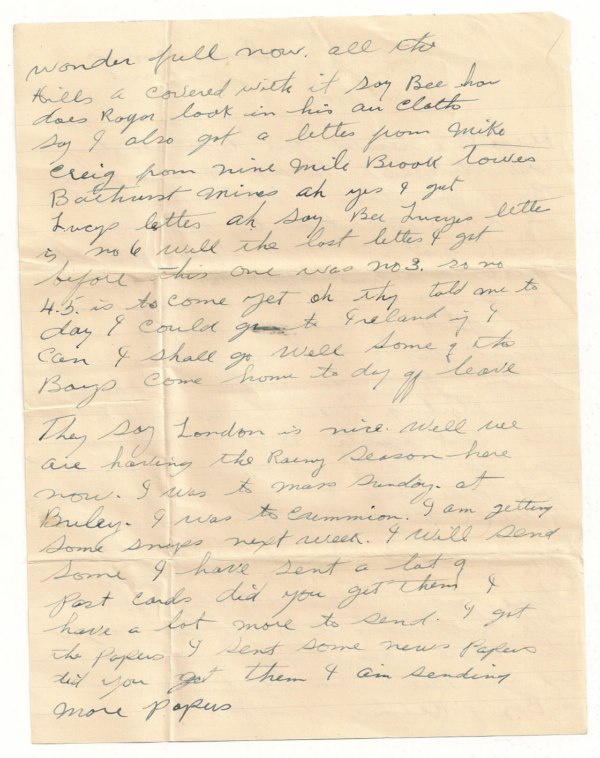 wonder full now. all the
Hills a covered with it say Bee how
does Roger look in his air Cloths
say I also got a letter from Mike
Creig from nine Mile Brook Towes
Bathurst Mines ah yes I got
Lucys letter ah say Bee Lucyes letter
is no 6 well the last letter I got
before this one was no 3. so no
4.5. is to come yet oh thy told me to
day I could go to Ireland if I
Can I shall go Well some of the
Boays come home to day off leave
They say London is nice. Well we
are having the Rainy Season here
now. I was to mass Sunday. at
I was to Crummion. I am getting
some snaps next week. I will send
some I have sent a lot of
Post cards did you get them I
have a lot more to send. I got
the Papers I sent some news Papers
did you get them I am sending
more Papers